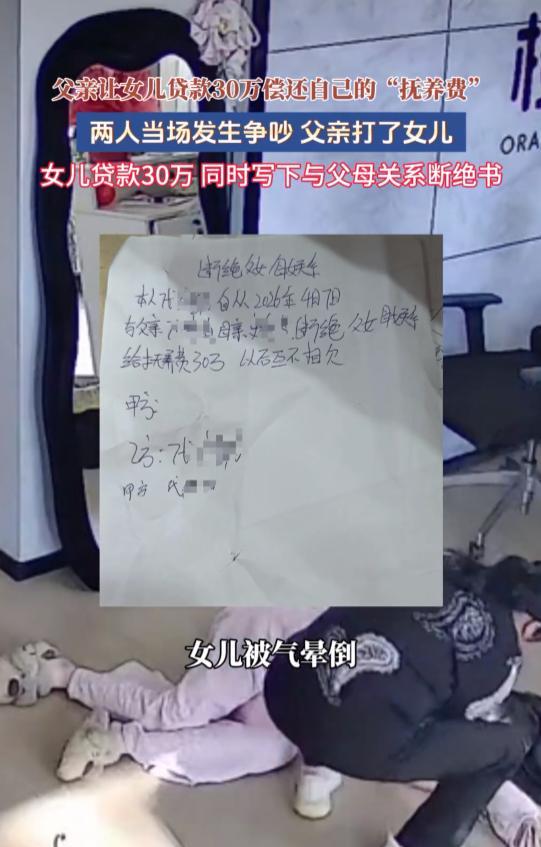 父亲让女儿贷款30万偿还自己的“抚养费”
两人当场发生争吵 父亲打了女儿
女儿贷款30万 同时写下与父母关系断绝书
ORA
断绝父女母女关系
本人代 自从2026年4月7日
与父亲 母亲 断绝父女母女关系
给抚养费30万 以后互不相欠
甲方:
乙方:代
甲方 代
女儿被气晕倒